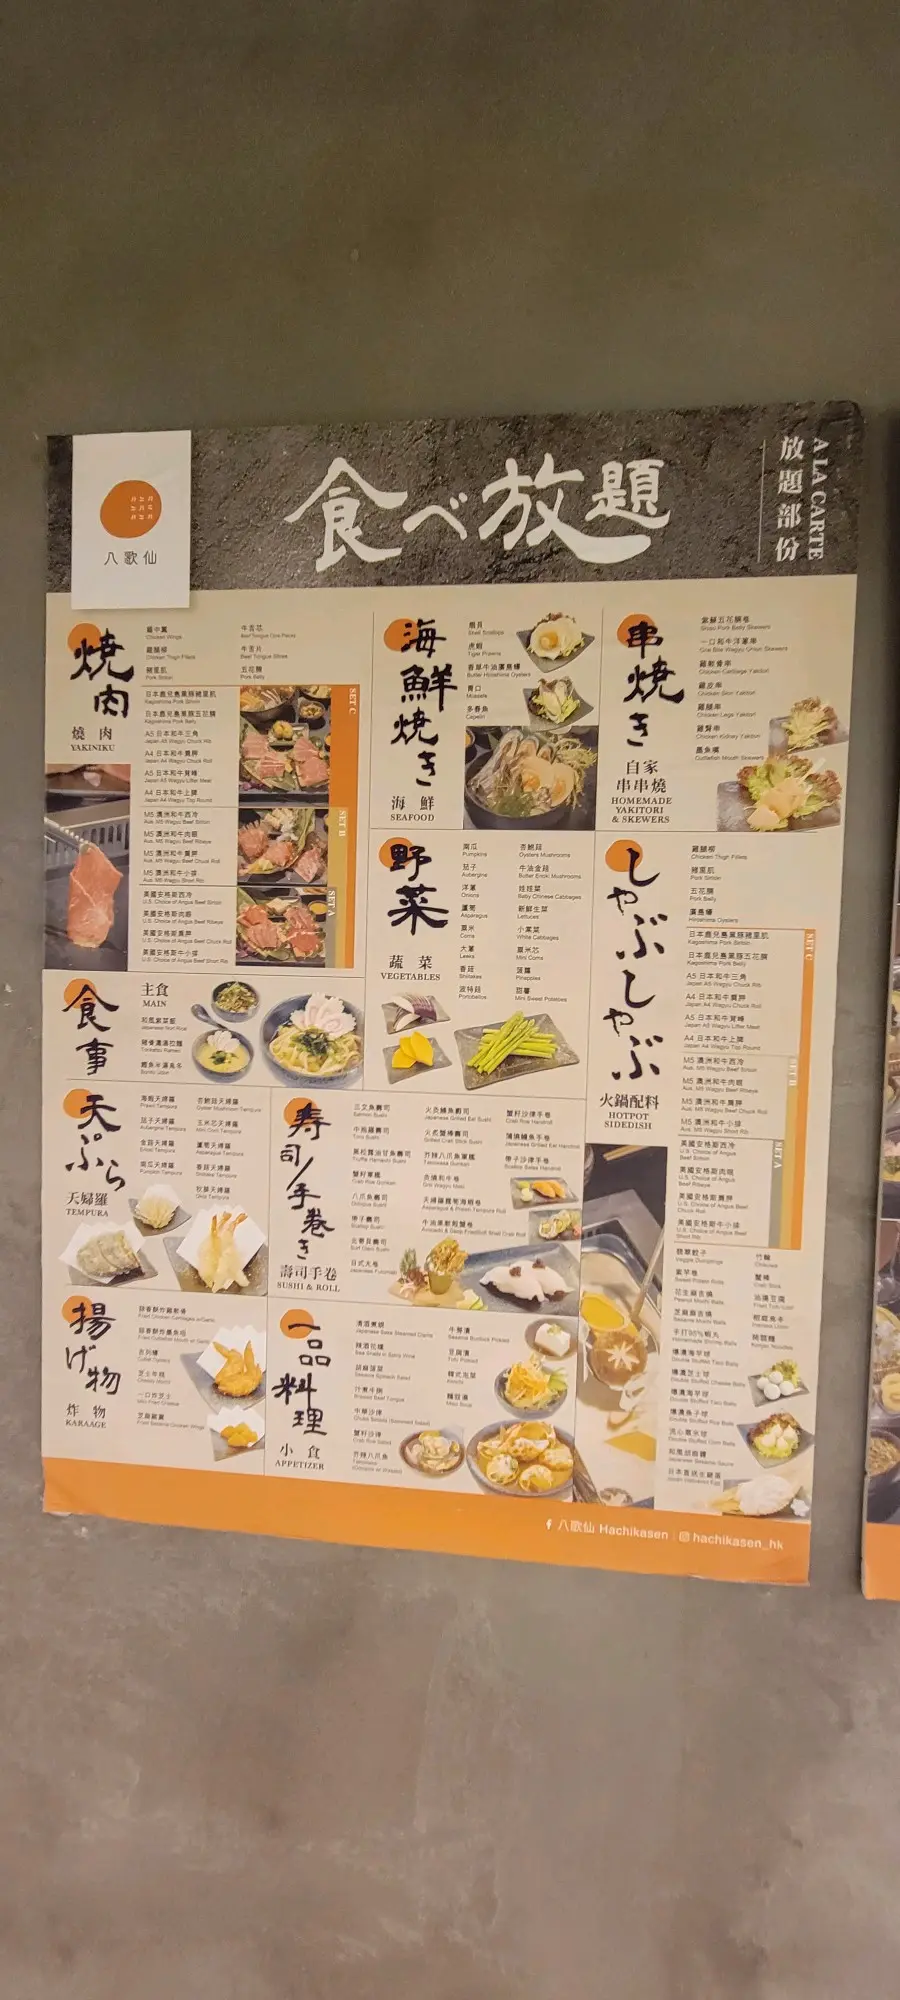 八歌仙
食べ放題
放題部份
A LA CARTE
焼肉
燒肉
YAKINIKU
雞中翼
Chicken Wings
雞腿柳
Chicken Thigh Fillets
豬里肌
Pork Sirloin
牛舌芯
牛舌片
五花腩
Pork Belly
SET C
日本鹿兒島黑豚豬里肌
Kagoshima Pork Sirloin
日本鹿兒島黑豚五花腩
Kagoshima Pork Belly
A5 日本和牛三角
Japan A5 Wagyu Chuck Rib
A4 日本和牛肩胛
Japan A4 Wagyu Chuck Roll
A5 日本和牛背峰
A4 日本和牛上脾
Japan A4 Wagyu Top Round
SET B
M5 澳洲和牛西冷
Aus. M5 Wagyu Beef Sirloin
M5 澳洲和牛肉眼
Aus. M5 Wagyu Beef Ribeye
M5 澳洲和牛肩胛
Aus. M5 Wagyu Beef Chuck Roll
M5 澳洲和牛小排
Aus. M5 Wagyu Short Rib
SET A
美國安格斯西冷
U.S. Choice of Angus Beef Sirloin
美國安格斯肉眼
U.S. Choice of Angus Beef Ribeye
美國安格斯肩胛
U.S. Choice of Angus Beef Chuck Roll
美國安格斯牛小排
U.S. Choice of Angus Beef Short Rib
海鮮焼き
海鮮
SEAFOOD
扇貝
虎蝦
Tiger Prawns
香草牛油廣島蠔
Butter Hiroshima Oysters
青口
Mussels
多春魚
Capelin
串焼き
自家
串串燒
HOMEMADE
YAKITORI
& SKEWERS
紫蘇五花腩卷
Shiso Pork Belly Skewers
一口和牛洋蔥串
雞軟骨串
Chicken Cartilage Yakitori
雞皮串
Chicken Skin Yakitori
雞腿串
Chicken Legs Yakitori
雞腎串
Chicken Kidney Yakitori
墨魚嘴
Cuttlefish Mouth Skewers
野菜
蔬菜
VEGETABLES
南瓜
Pumpkins
茄子
Aubergine
洋蔥
Onions
蘆筍
Asparagus
粟米
Corns
大蔥
Leeks
香菇
Shiitakes
波特菇
Portobellos
杏鮑菇
Oysters Mushrooms
牛油金菇
Butter Enoki Mushrooms
娃娃菜
Baby Chinese Cabbages
新鮮生菜
Lettuces
小棠菜
White Cabbages
粟米芯
Mini Corns
菠蘿
Pineapples
甜薯
Mini Sweet Potatoes
しゃぶしゃぶ
火鍋配料
HOTPOT
SIDEDISH
雞腿柳
Chicken Thigh Fillets
豬里肌
Pork Sirloin
五花腩
Pork Belly
廣島蠔
Hiroshima Oysters
SET C
日本鹿兒島黑豚豬里肌
Kagoshima Pork Sirloin
日本鹿兒島黑豚五花腩
Kagoshima Pork Belly
A5 日本和牛三角
Japan A5 Wagyu Chuck Rib
A4 日本和牛肩胛
Japan A4 Wagyu Chuck Roll
A5 日本和牛背峰
A4 日本和牛上脾
Japan A4 Wagyu Top Round
SET B
M5 澳洲和牛西冷
Aus. M5 Wagyu Beef Sirloin
M5 澳洲和牛肉眼
Aus. M5 Wagyu Beef Ribeye
M5 澳洲和牛肩胛
Aus. M5 Wagyu Beef Chuck Roll
M5 澳洲和牛小排
Aus. M5 Wagyu Short Rib
SET A
美國安格斯西冷
U.S. Choice of Angus
Beef Sirloin
美國安格斯肉眼
U.S. Choice of Angus
Beef Ribeye
美國安格斯肩胛
U.S. Choice of Angus Beef
Chuck Roll
美國安格斯牛小排
U.S. Choice of Angus Beef
Short Rib
食事
主食
MAIN
和風紫菜飯
Japanese Nori Rice
豬骨濃湯拉麵
Tonkotsu Ramen
天ぷら
天婦羅
TEMPURA
海蝦天婦羅
Prawn Tempura
茄子天婦羅
Aubergine Tempura
金菇天婦羅
Enoki Tempura
南瓜天婦羅
Pumpkin Tempura
杏鮑菇天婦羅
Oyster Mushroom Tempura
玉米芯天婦羅
Mini Corn Tempura
蘆筍天婦羅
Asparagus Tempura
香菇天婦羅
Shiitake Tempura
秋葵天婦羅
Okra Tempura
寿司/手巻き
壽司手卷
SUSHI & ROLL
三文魚壽司
Salmon Sushi
八爪魚壽司
Octopus Sushi
帶子壽司
Scallop Sushi
日式太卷
Japanese Futomaki
火炙鰻魚壽司
Japanese Grilled Eel Sushi
火炙蟹棒壽司
Grilled Crab Stick Sushi
芥辣八爪魚軍艦
Takowasa Gunkan
炎燒和牛卷
天婦羅蘆筍海蝦卷
Asparagus & Prawn Tempura Roll
牛油果軟殼蟹卷
蟹籽沙律手卷
Crab Roe Handroll
蒲燒鰻魚手卷
Japanese Grilled Eel Handroll
帶子沙律手卷
揚げ物
炸物
KARAAGE
蒜香酥炸雞軟骨
蒜香酥炸墨魚咀
吉列蠔
芝士年糕
Cheesy Mochi
一口炸芝士
Mini Fried Cheese
芝麻雞翼
一品料理
小食
APPETIZER
胡麻菠菜
Sesame Spinach Salad
汁煮牛脷
中華沙律
蟹籽沙律
Crab Roe Salad
芥辣八爪魚
Takowasa
牛蒡漬
豆腐漬
韓式泡菜
Kimchi
麵豉湯
Miso Soup
翡翠餃子
Veggie Dumplings
紫芋卷
Sweet Potato Rolls
花生麻吉燒
Peanut Mochi Balls
芝麻麻吉燒
Sesame Mochi Balls
手打90%蝦丸
Homemade Shrimp Balls
爆漿芝士球
Double Stuffed Cheese Balls
爆漿魚子球
Double Stuffed Roe Balls
流心粟米球
Double Stuffed Corn Balls
和風胡麻醬
Japanese Sesame Sauce
日本直送生雞蛋
竹輪
Chikuwa
蟹棒
Crab Stick
油揚豆腐
蒟蒻麵
Konjac Noodles
八歌仙 Hachikasen
hachikasen_hk